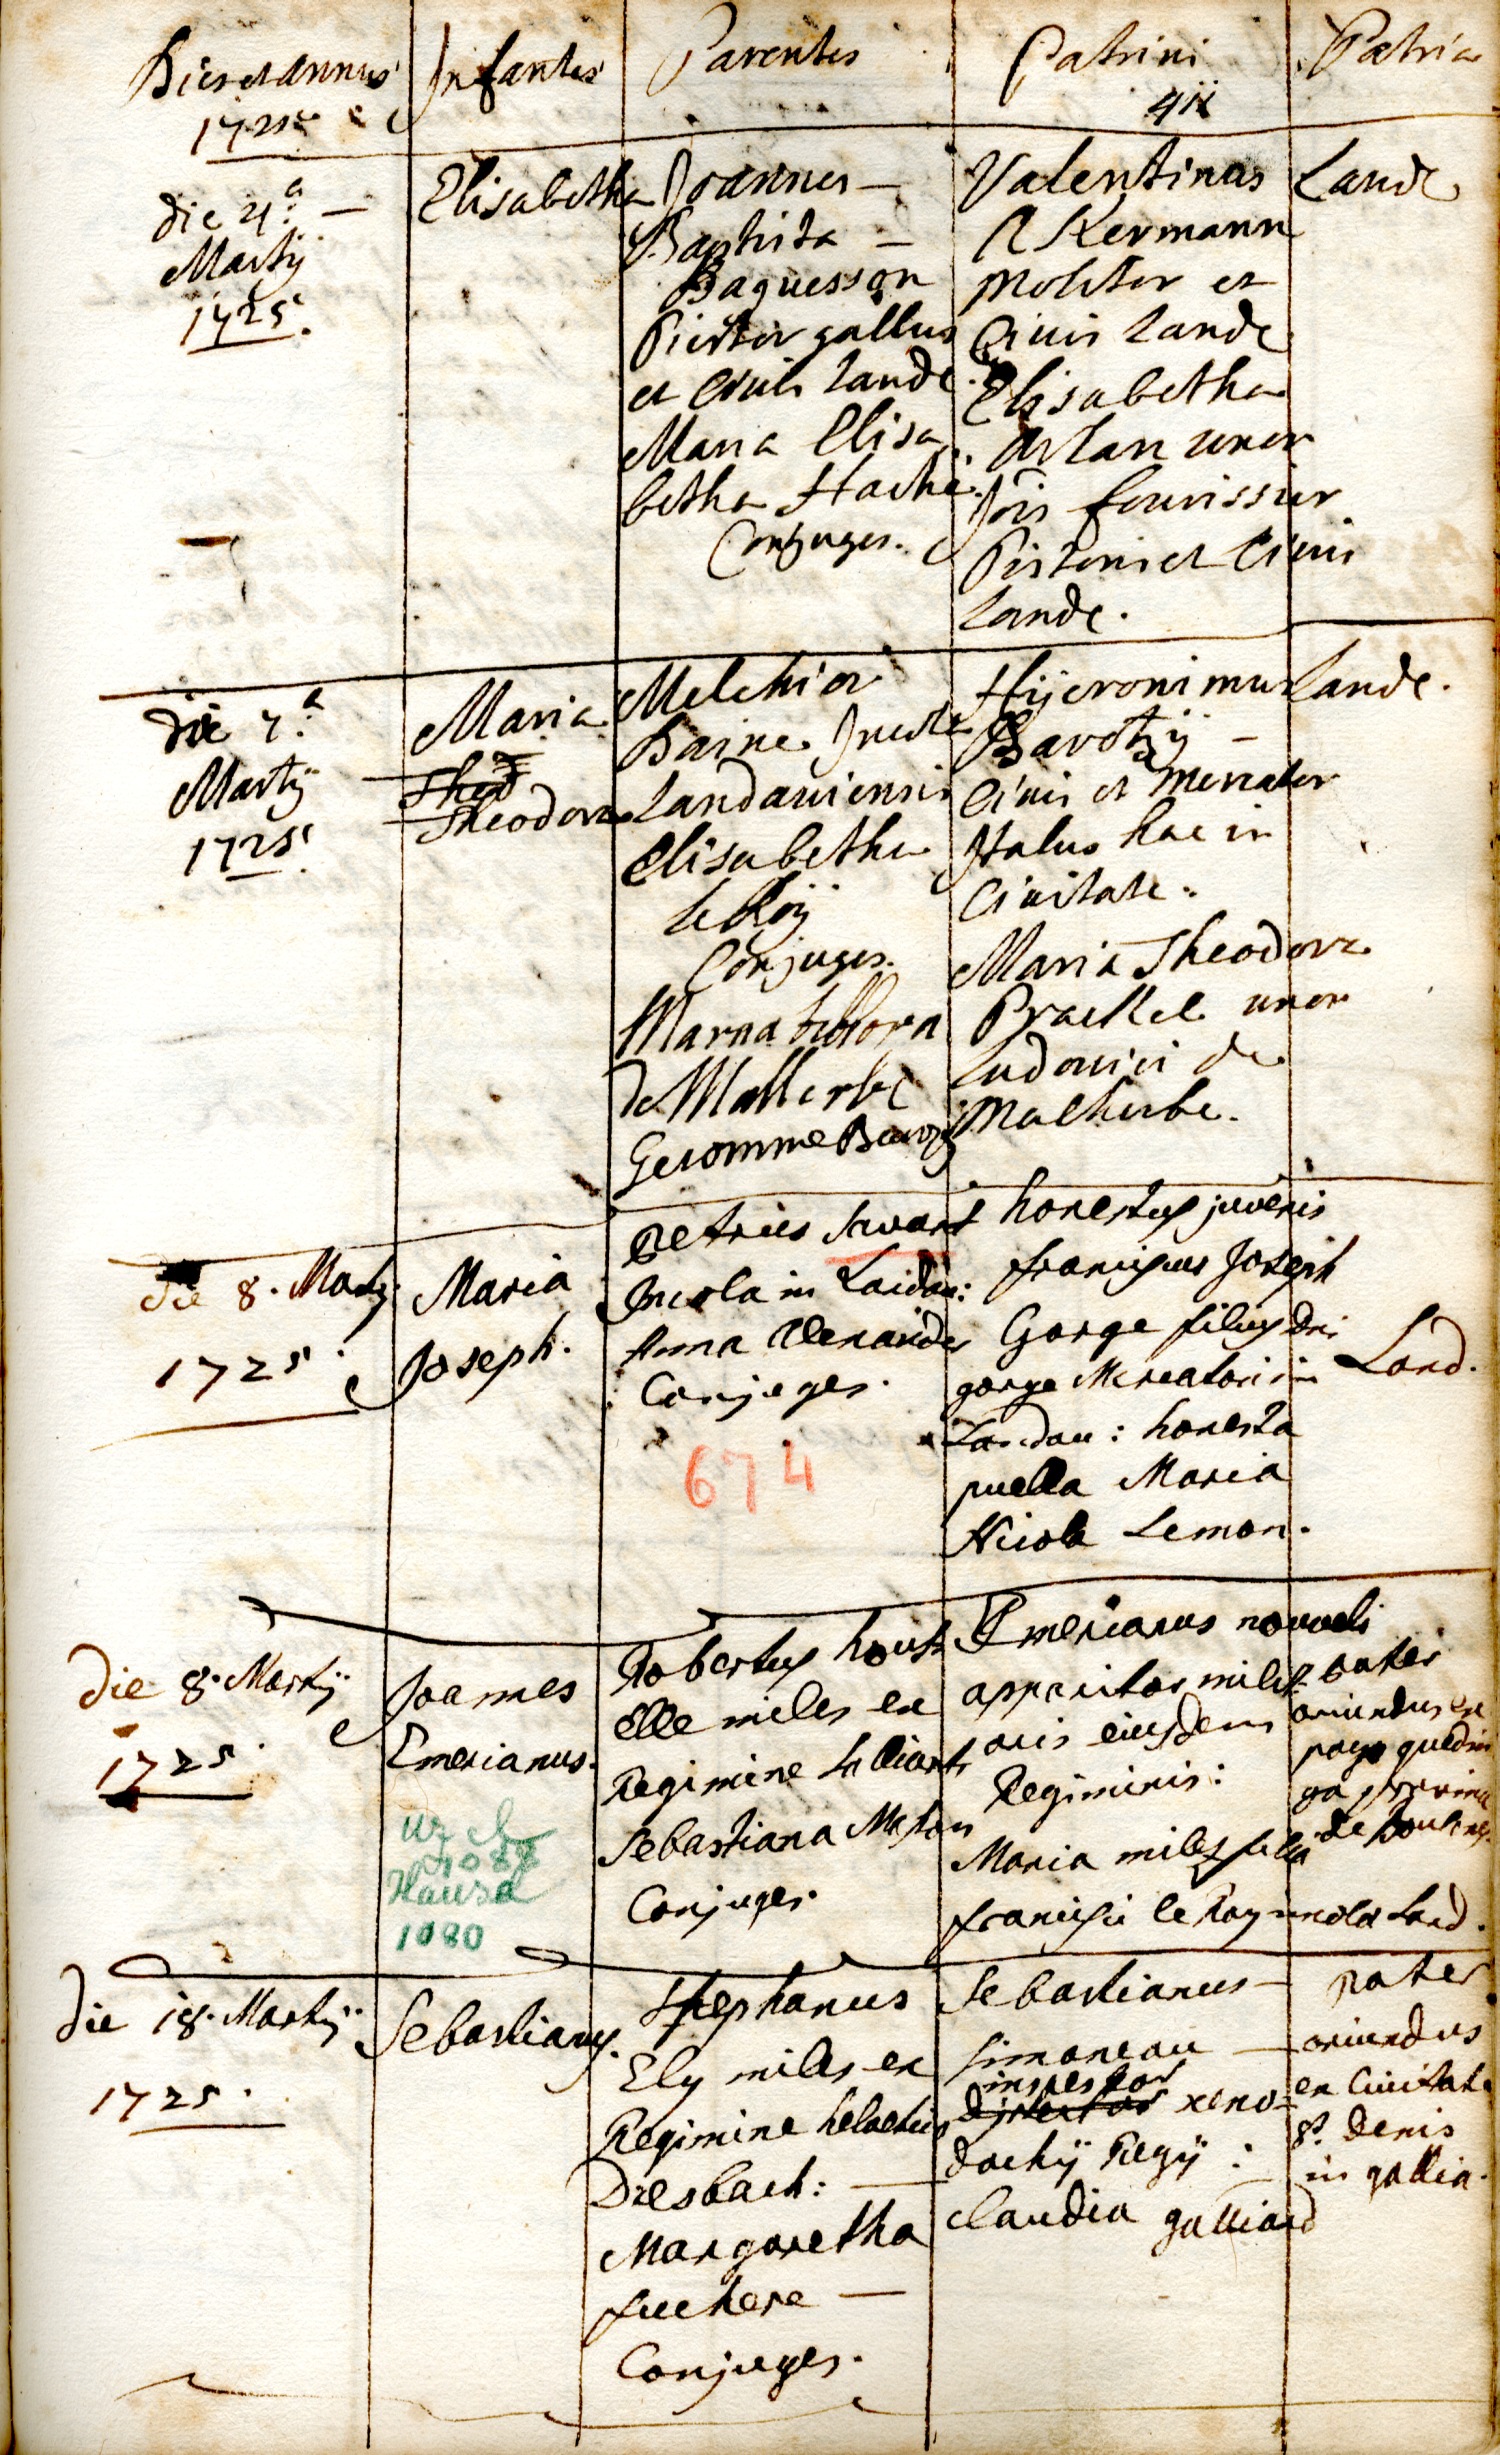 Dies et annus Infantes Parentes Patrini Patria
1725
411
die 4.a —
Martij
1725.
Elisabetha
Joannes —
Baptista —
Baquesson
Pistor gallus
et Civis Landc.
Maria Elisa
betha Hache
Conjuges.
Valentinus
Akermann
Molitor et
Civis Landc
Elisabetha
Artan uxor
Jois fourissier
Pistoris et Civis
Landc.
Landc
die 7.a
Martij
1725.
Maria
Theod
Theodora
Melchior
Daine Incola
Landaviensis
Elisabetha
le Roÿ
Conjuges.
de Mallerbe
Geromme Barozij
Hijeronimus
Barotzij —
Civis et Mercator
Italus hac in
Civitate.
Maria Theodora
Prackel uxor
Ludovici de
Malherbe.
Landc.
die 8. Martij
1725.
Maria
Joseph.
Petrus Suvart
Incola in Landau:
Anna
Conjuges.
674
honestus juvenis
franciscus Joseph
Gorge filius Dni
gorge Mercatoris in
Landau: honesta
puella Maria
Nicola Lemon.
Land.
die 8. Martij
1725.
Joannes
Emerianus.
Hausa
1080
Robertus
elle miles ex
Regimine
Sebastiana
Conjuges.
Emerianus
apparitor
ejusdem
Regiminis:
Maria
francisci le Roy incola Land.
pater
oriundus ex
pago
die 18. Martij
1725.
Sebastianus.
Stephanus
Ely miles ex
Regimine helvetico
Diesbach: —
Margaretha
fuchere —
Conjuges.
Sebastianus —
Simoneau —
inspector
xeno=
dochij Regij:
Claudia galliard
pater
oriundus
ex Civitate
St. Denis
in gallia.